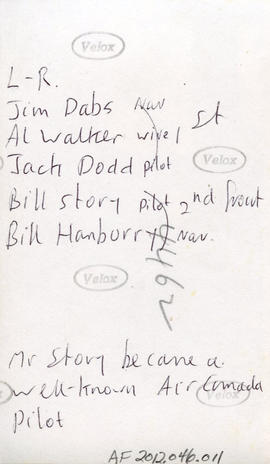 Velox
L-R.
Jim Dabs Nav
Al Walker wire/ St
Jack Dodd pilot
Velox
Bill Story pilot 2nd front
Bill Hanburry Nav.
Velox
Mr Story became a
well-known Air Canada
Velox
Pilot
AF 2012.046.011